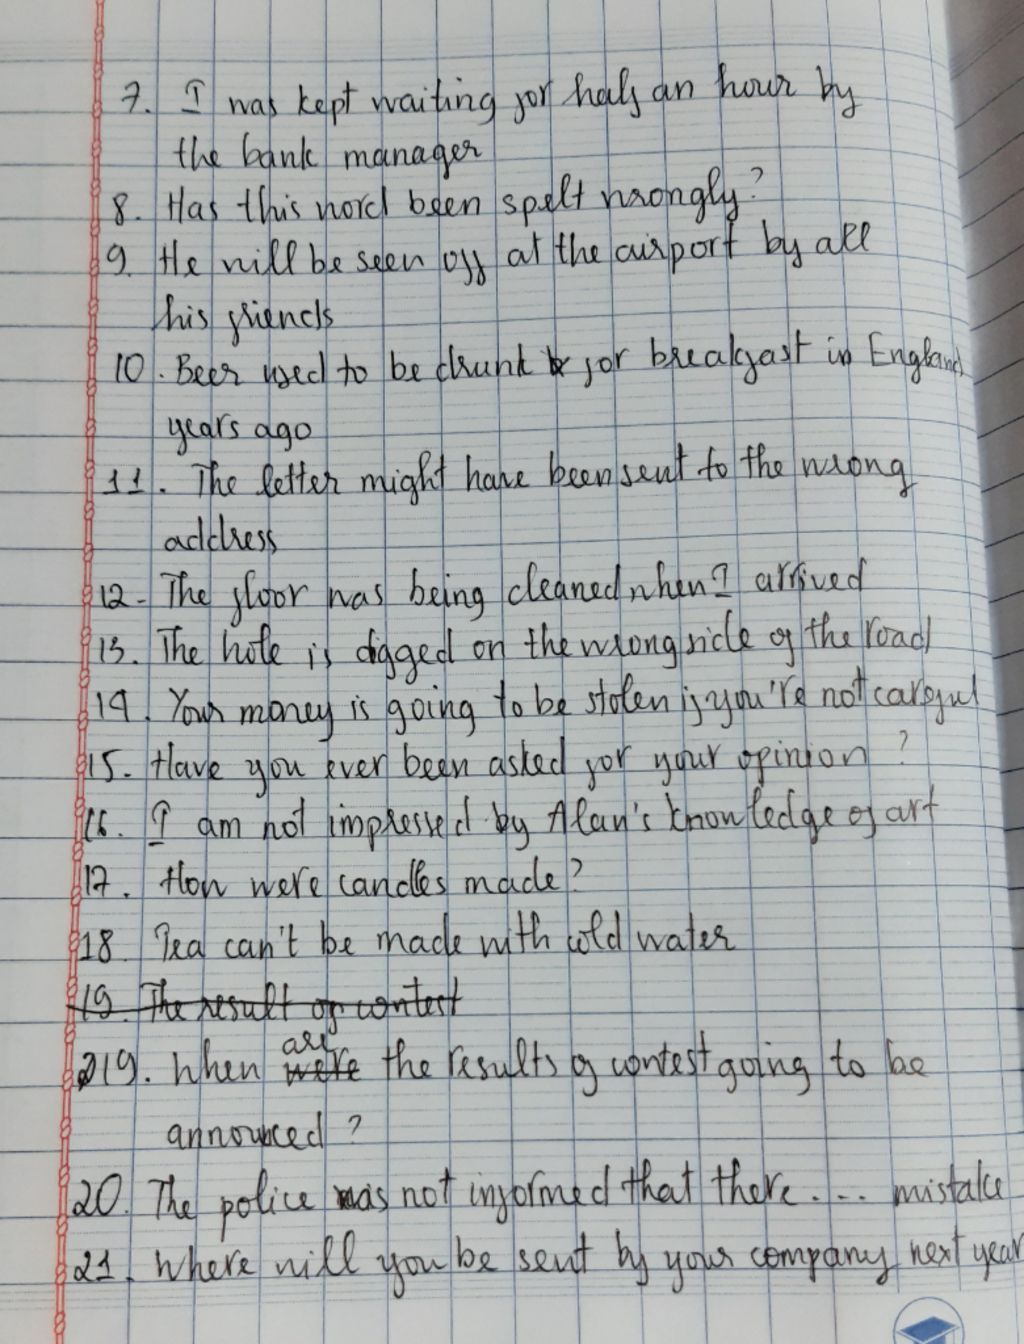 7. I was kept waiting for half an hour by
the bank manager
8. Has this word been spelt wrongly?
9. He will be seen off at the airport by all
his friends
10. Beer used to be drunk for breakfast in England
years ago
11. The letter might have been sent to the wrong
address
12. The floor was being cleaned when I arrived
13. The hole is digged on the wrong side of the road
14. Your money is going to be stolen if you're not careful
15. Have you ever been asked for your opinion?
16. I am not impressed by Alan's knowledge of art
17. How were candles made?
18. Tea can't be made with cold water
19. The result of contest
19. When are were the results of contest going to be
announced?
20. The police was not informed that there.... mistake
21. Where will you be sent by your company next year